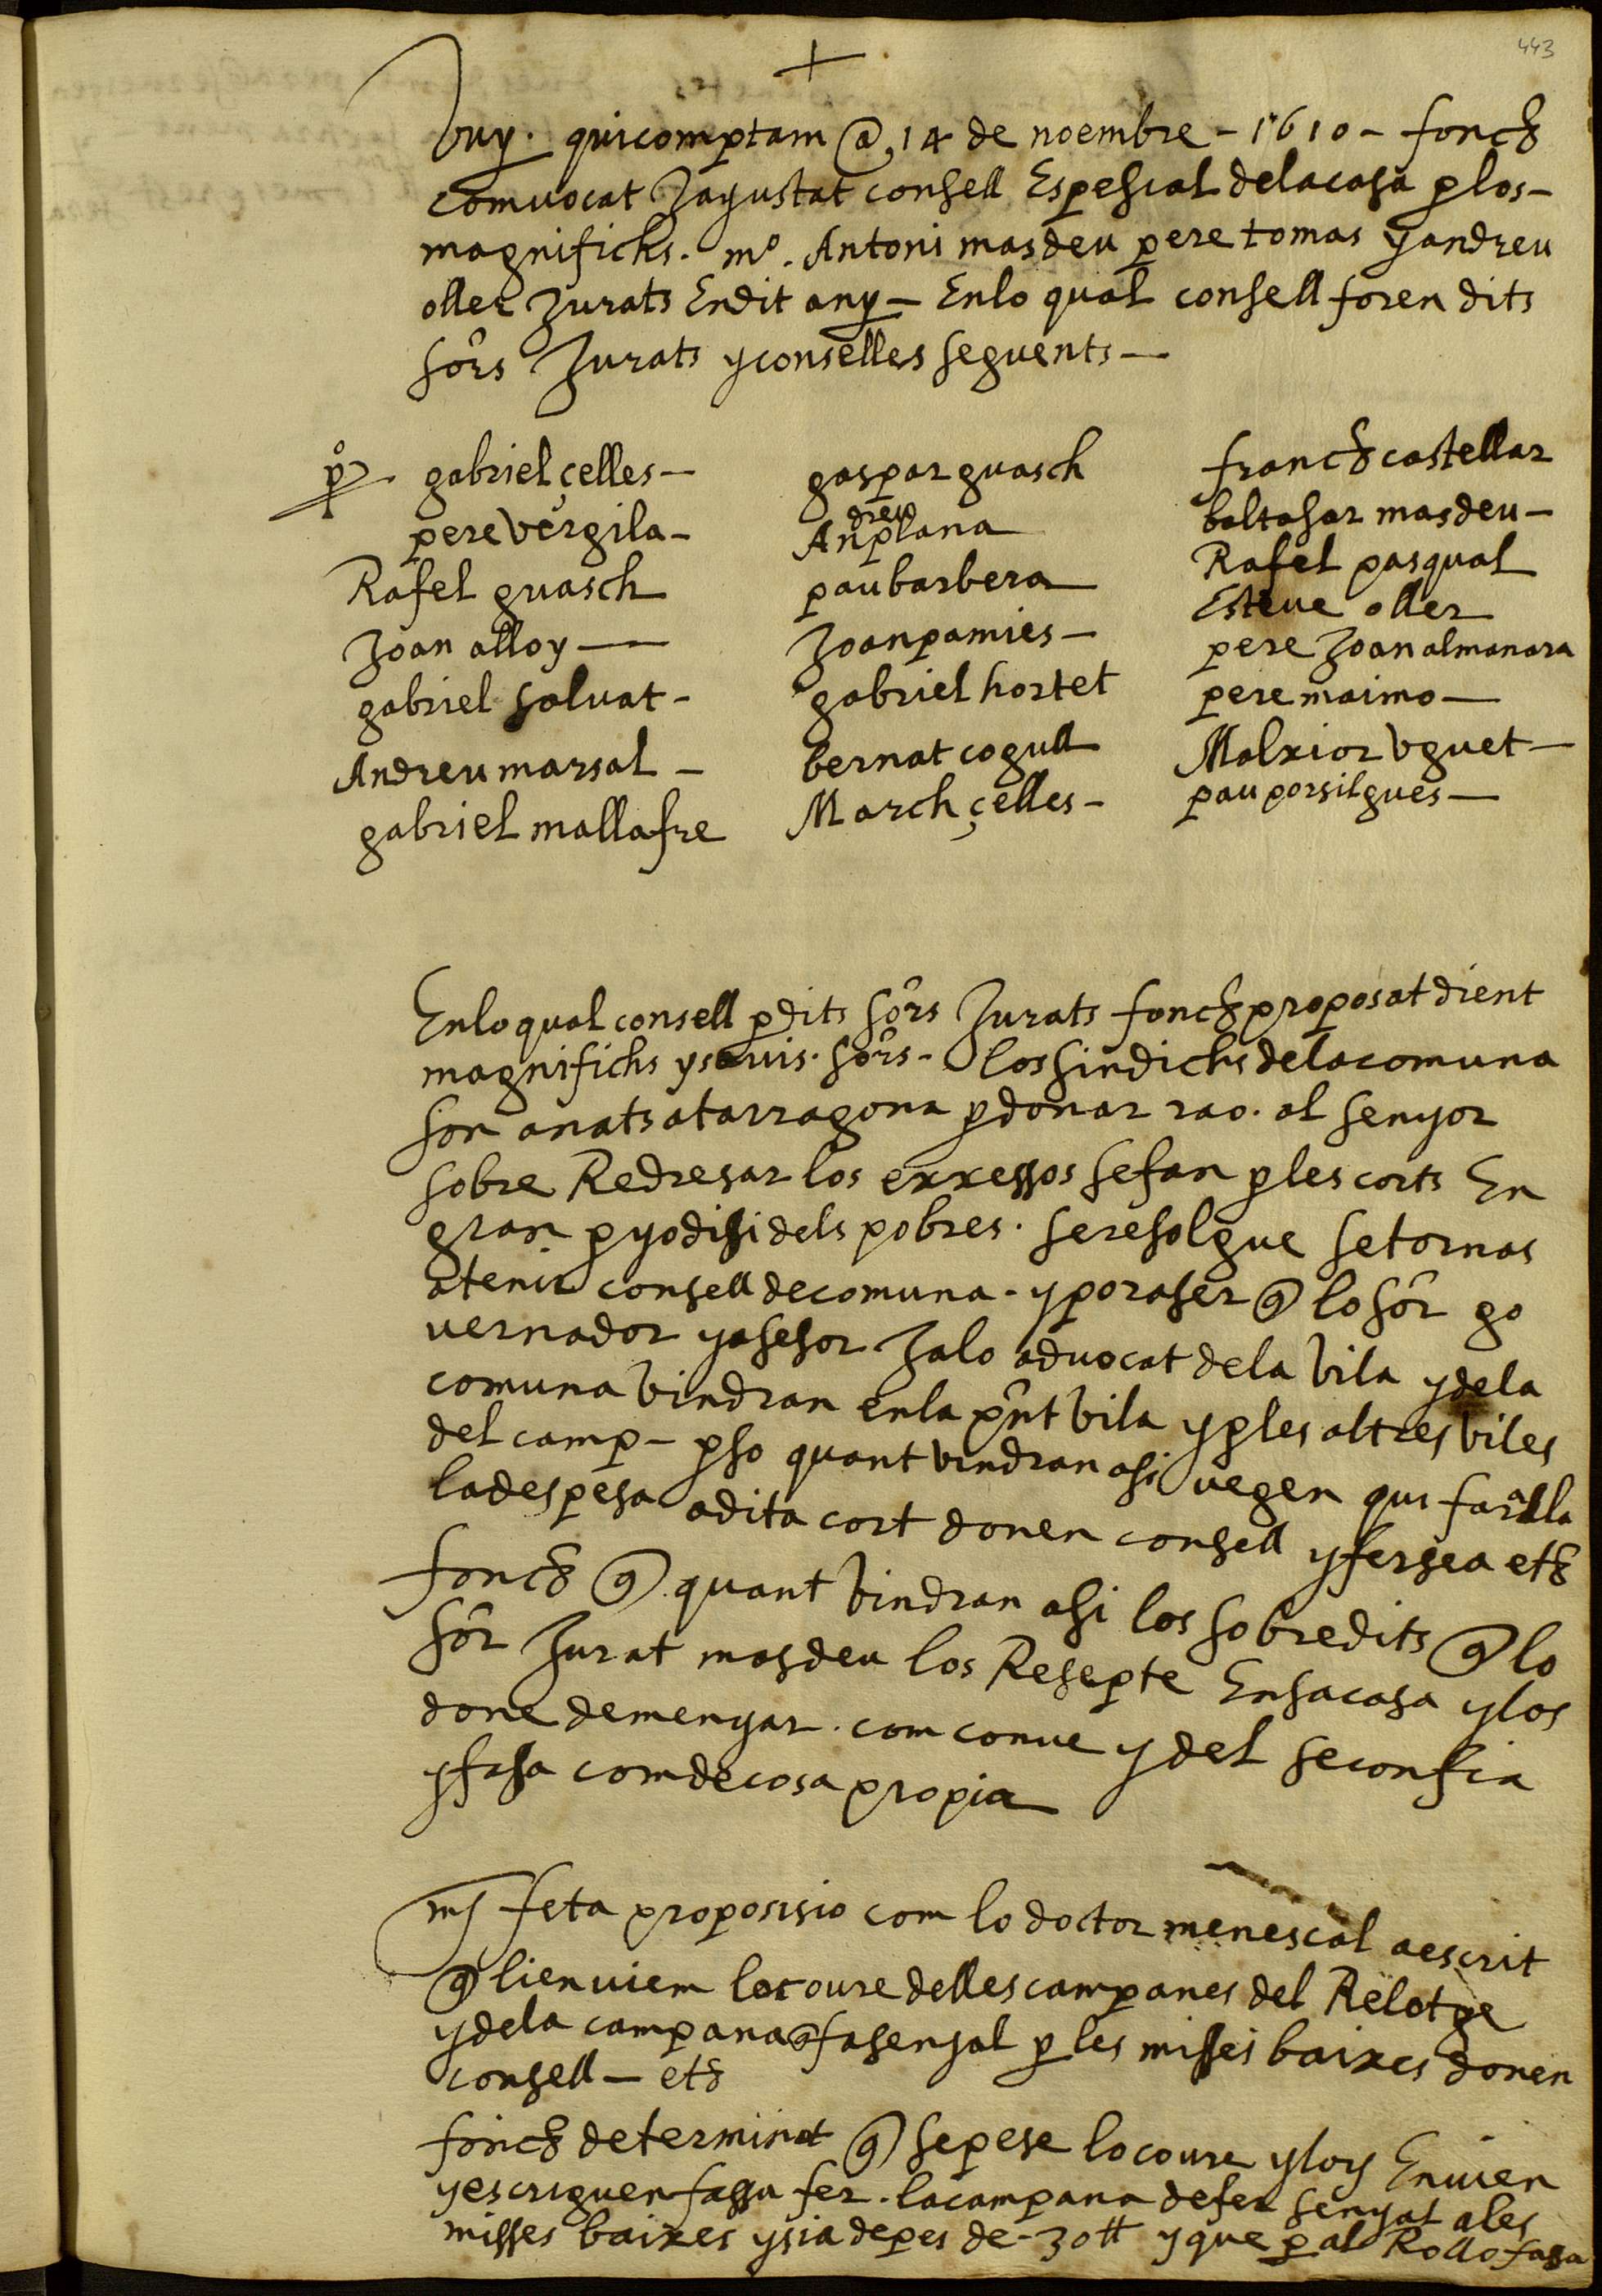 443
+
Vuy. quicomptam @ 14 de noembre - 1610 - fonch
comuocat Jajustat consell Espesial delacasa p los -
magnifichs. mº. Antoni masdeu pere tomas y andreu
oller Jurats Endit any - Enlo qual consell foren dits
sôrs Jurats y conselles seguents -
pº gabriel çelles - gaspar guasch franch castellar
pere vergila - Andreu plana baltasar masdeu -
Rafel guasch pau barbera Rafel pasqual
Joan alloy - Joan pamies - Esteue oller
gabriel saluat - gabriel hortet pere Joan almanara
Andreu marsal - bernat cogull pere maimo -
gabriel mallafre March çelles - Malxior vguet -
pau porsilgues -
Enlo qual consell p dits sôrs Jurats fonch proposat dient
magnifichs y sauis. sôrs - los sindichs dela comuna
son anats a tarragona p donar rao. al senyor
sobre Redresar los exxessos se fan p les corts En
gran p yodisi dels pobres. se resolgue se tornas
a tenir consell de comuna - y pora ser q lo sôr go
uernador y asesor Ja lo aduocat dela vila y dela
comuna vindran enla pnt vila y p les altres viles
del camp - p so quant vindran asi vegen qui fara lla
la despesa a dita cort donen consell y fer sea etc
fonch q quant vindran asi los sobredits q lo
sôr Jurat masdeu los Resepte En sa casa y los
done de menyar. com conue y del se confia
y fasa com de cosa propia
mes feta proposisio com lo doctor menescal a escrit
q li enuiem lo coure de lles campanes del Relotge
y dela campana q fa senyal p les misses baixes donen
consell - etc
fonch determinat q se pese lo coure y loy Enuien
y escriguen fassa fer. la campana de fer senyal a les
misses baixes y sia de pes de - 30 ℔ y que p al Rollo fasa